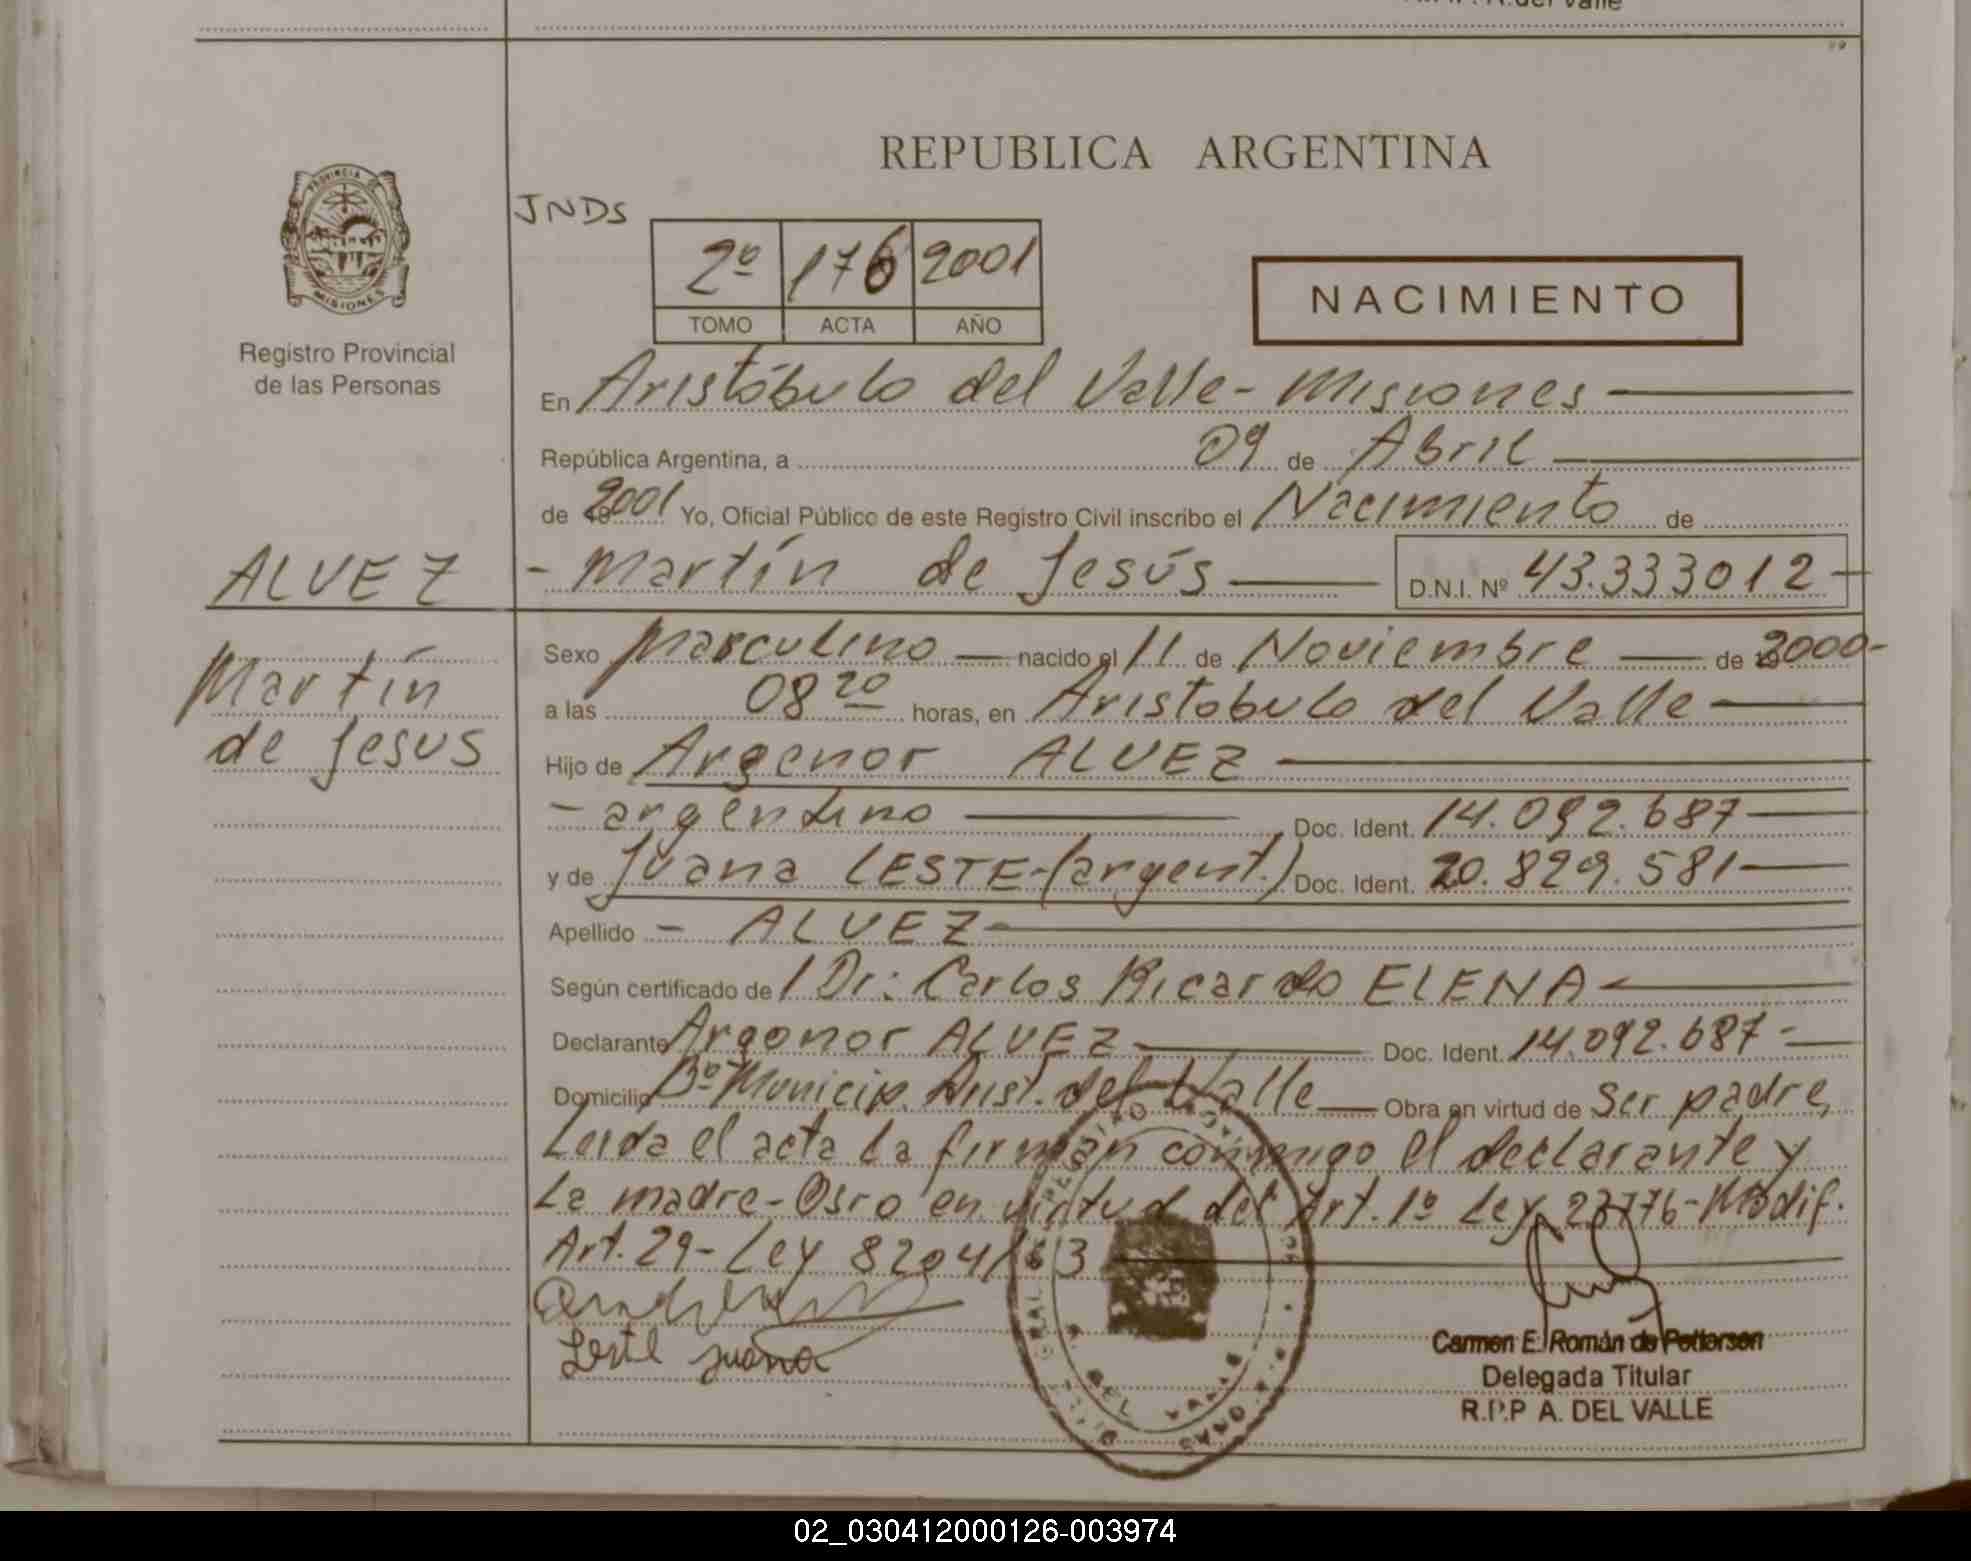 REPUBLICA ARGENTINA
PROVINCIA DE
MISIONES
Registro Provincial
de las Personas
JNDS
2º 176 2001
TOMO ACTA AÑO
NACIMIENTO
En Aristóbulo del Valle - Misiones
República Argentina, a 09 de Abril
de 2001 Yo, Oficial Público de este Registro Civil inscribo el Nacimiento de
ALVEZ
- Martín de Jesús D.N.I. Nº 43.333012
Martín
de Jesus
Sexo Masculino nacido el 11 de Noviembre de 2000-
a las 08 20 horas, en Aristobulo del Valle
Hijo de Argenor ALVEZ
- argentino Doc. Ident. 14.092.687
y de Juana LESTE-(argent.) Doc. Ident. 20.829.581
Apellido - ALVEZ
Según certificado de l Dr: Carlos Ricardo ELENA
Declarante Argenor ALVEZ Doc. Ident. 14.092.687-
Domicilio Bº Municip. Arist. del Valle Obra en virtud de Ser padre,
Leida el acta la firman conmigo el declarante y
La madre-Osro en virtud del Art. 1º Ley 23776-Modif.
Art. 29- Ley 8204/63
Leste Juana
DEL VALLE
Carmen E. Román de Petterson
Delegada Titular
R.P.P A. DEL VALLE
02_030412000126-003974